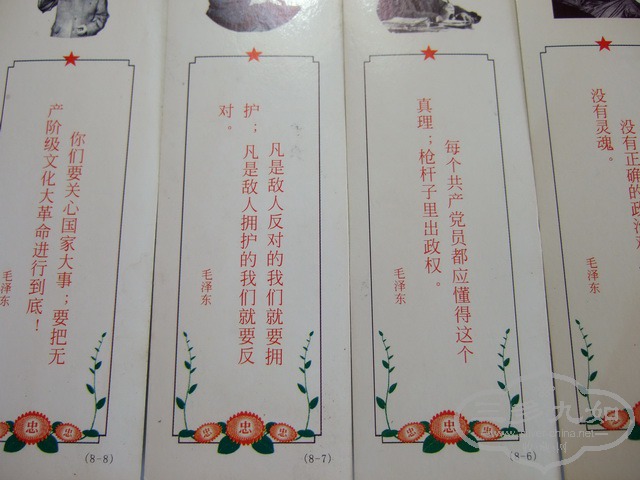 你们要关心国家大事；要把无
产阶级文化大革命进行到底！
毛泽东
忠
忠
(8-8)
凡是敌人反对的我们就要拥
护；凡是敌人拥护的我们就要反
对。
毛泽东
忠
忠
忠
(8-7)
每个共产党员都应懂得这个
真理；枪杆子里出政权。
毛泽东
忠
忠
忠
(8-6)
没有正确的政治
没有灵魂。
毛泽东
忠
三多九如